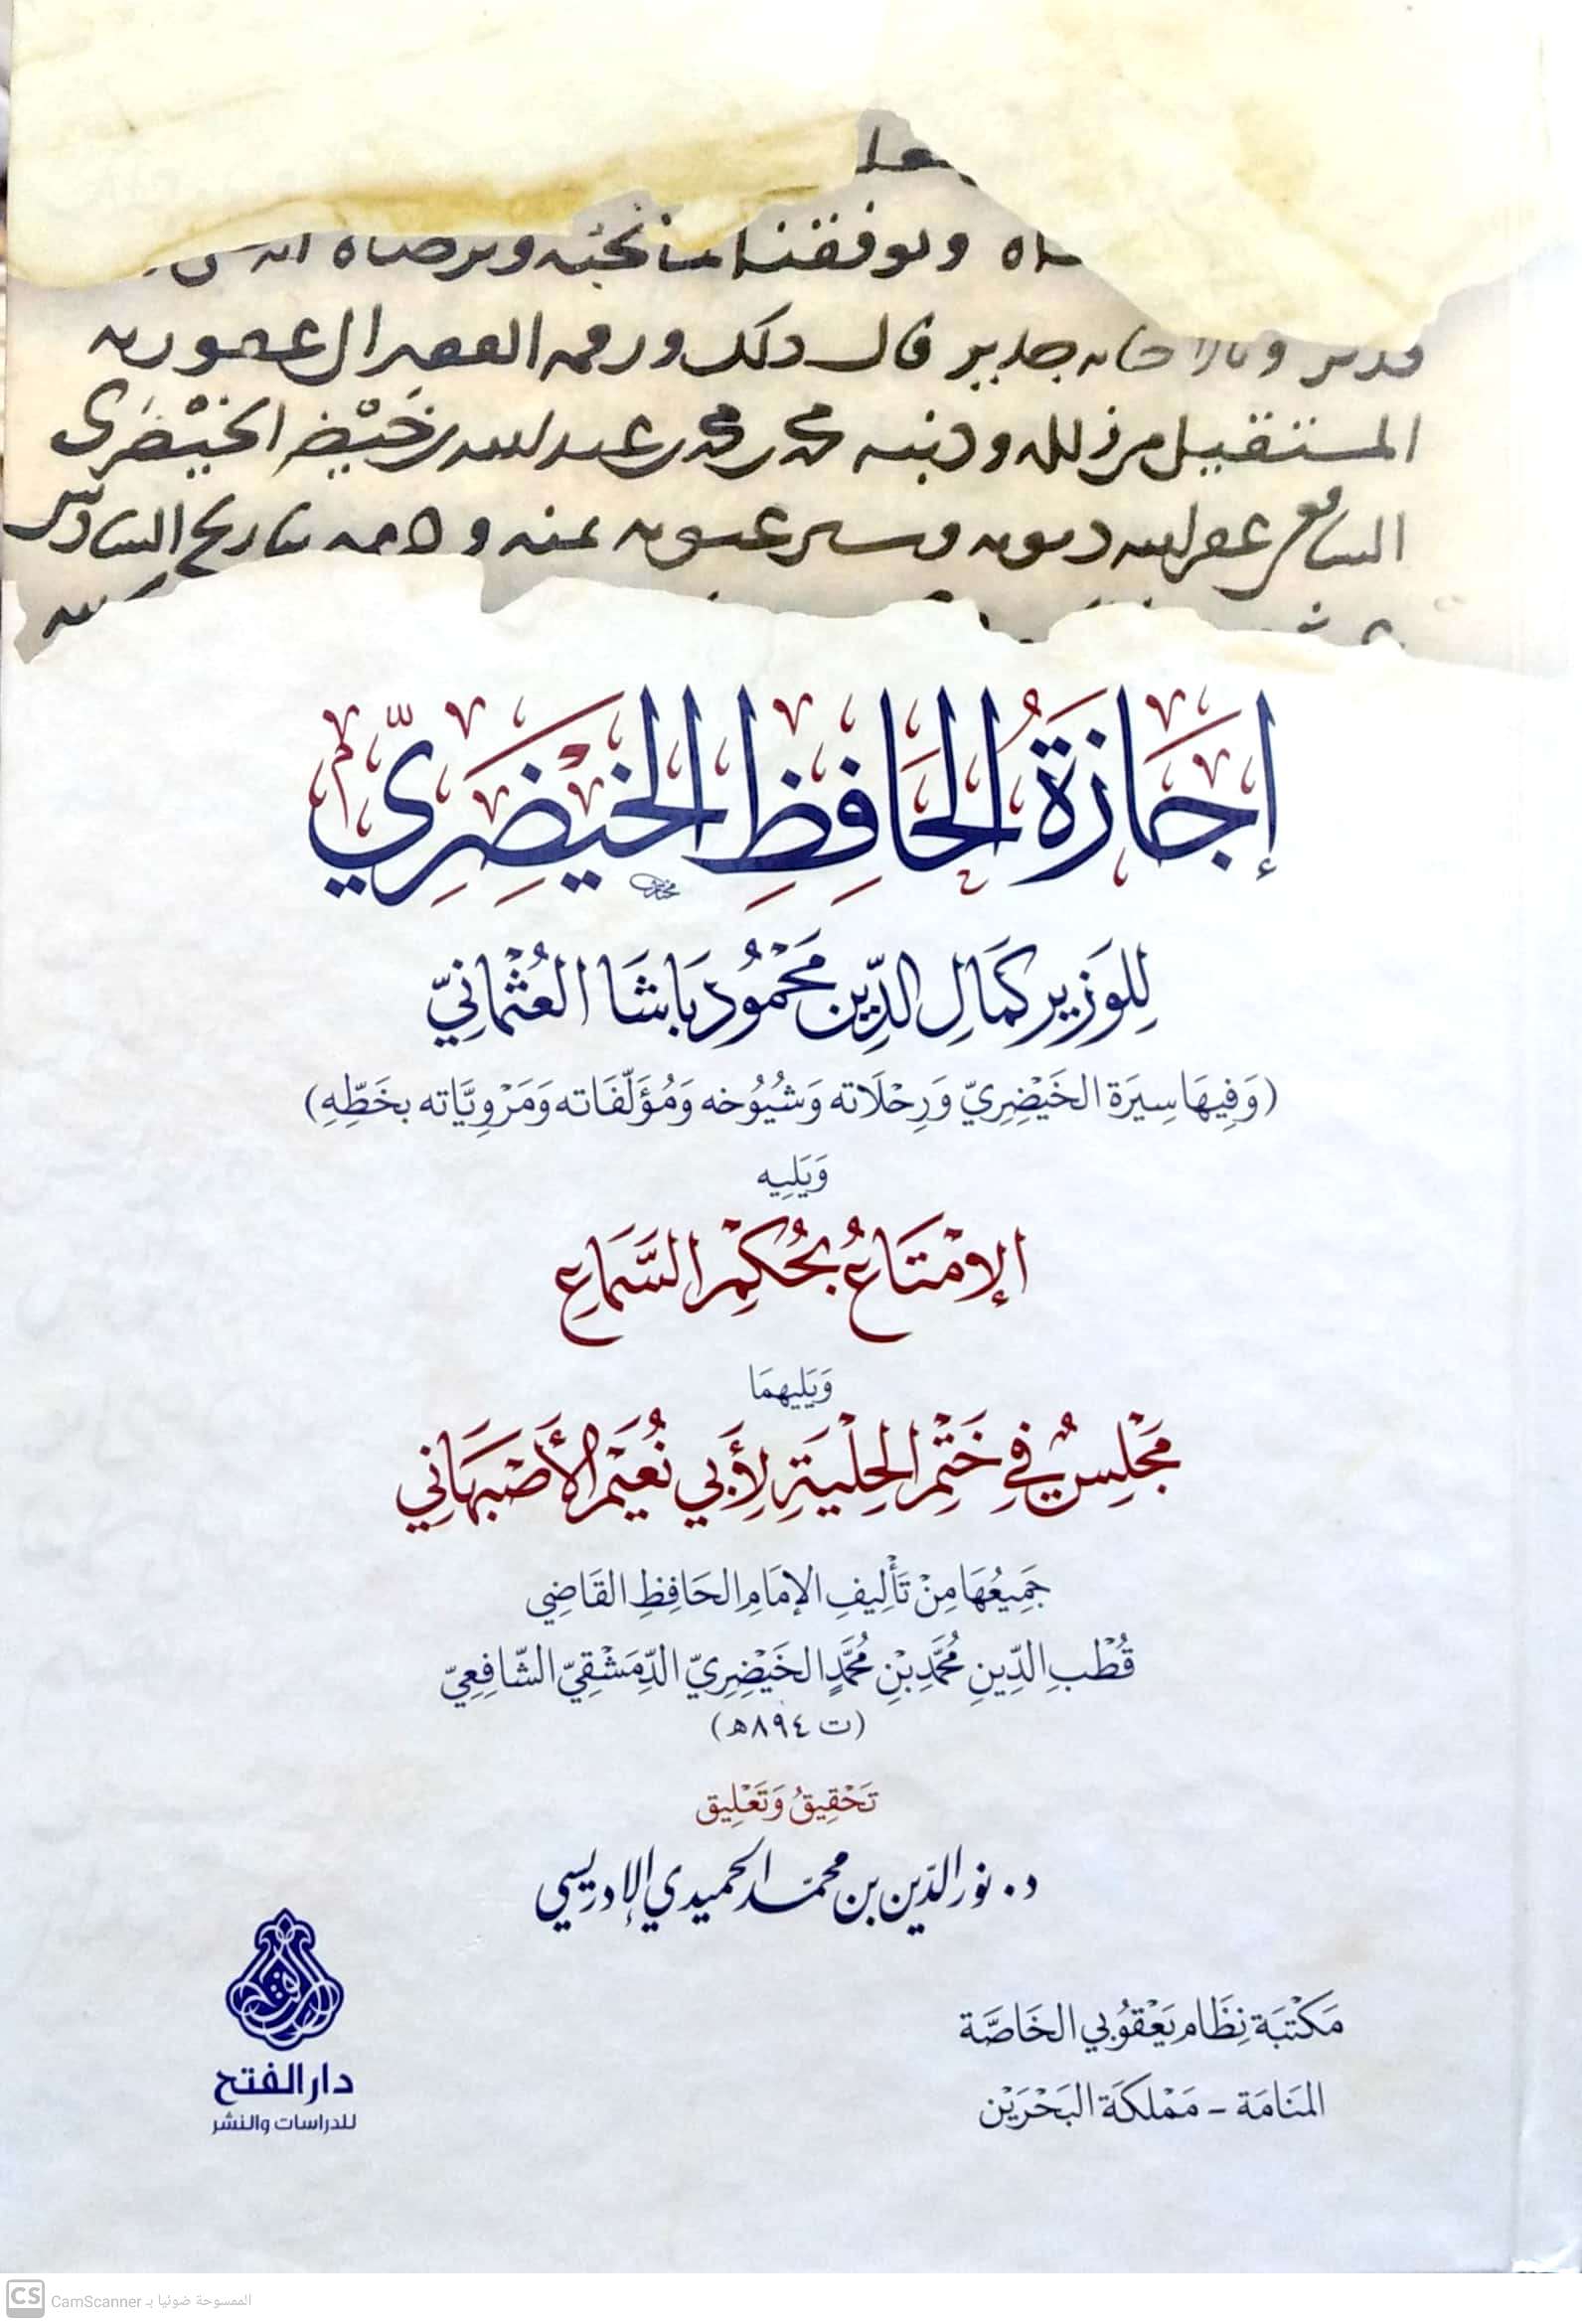 ويوفقنا لما نحبه ويرضاه
جدير قال ذلك ورقمه الفقير الى عفو ربه
المستقيل من زلله وذنبه محمد بن محمد بن عبد الله بن خَيْضر الخَيْضَري
الشافعي غفر الله ذنوبه وستر عيوبه بمنه و بتاريخ السادس
إِجَازَةُ الحَافِظِ الخَيْضِرِيّ
لِلوَزِير كَمَالِ الدِّين مَحْمُود بَاشَا العُثْمَانِيّ
(وَفِيهَا سِيرَة الخَيْضِرِيّ وَرِحْلَاته وَشُيُوُخه وَمُؤَلَّفَاته وَمَرْوِيَّاته بخَطِّهِ)
وَيَلِيه
الإِمْتَاعُ بحُكْمِ السَّمَاعِ
وَيَليهِمَا
مَجْلِسٌ فِي خَتْمِ الحِلْيَةِ لِأَبي نُعَيْم الأَصْبهَانِي
جَمِيعُهَا مِنْ تَأْلِيفِ الإمَامِ الحَافِظِ القَاضِي
قُطْبِ الدِّينِ مُحَمَّدِ بْنِ مُحَمَّدٍ الخَيْضِرِيّ الدِّمَشْقِيّ الشَّافِعِيّ
(ت ٨٩٤هـ)
تَحْقِيقُ وَتَعْلِيق
د. نور الدّين بن محمّد الحميدي الإدريسي
مَكْتبَة نِظَام يَعْقُوبي الخَاصَّة
المَنَامَة - مَمْلكَة البَحْرَيْن
دار الفتح
للدراسات والنشر
CS CamScanner الممسوحة ضوئيا بـ